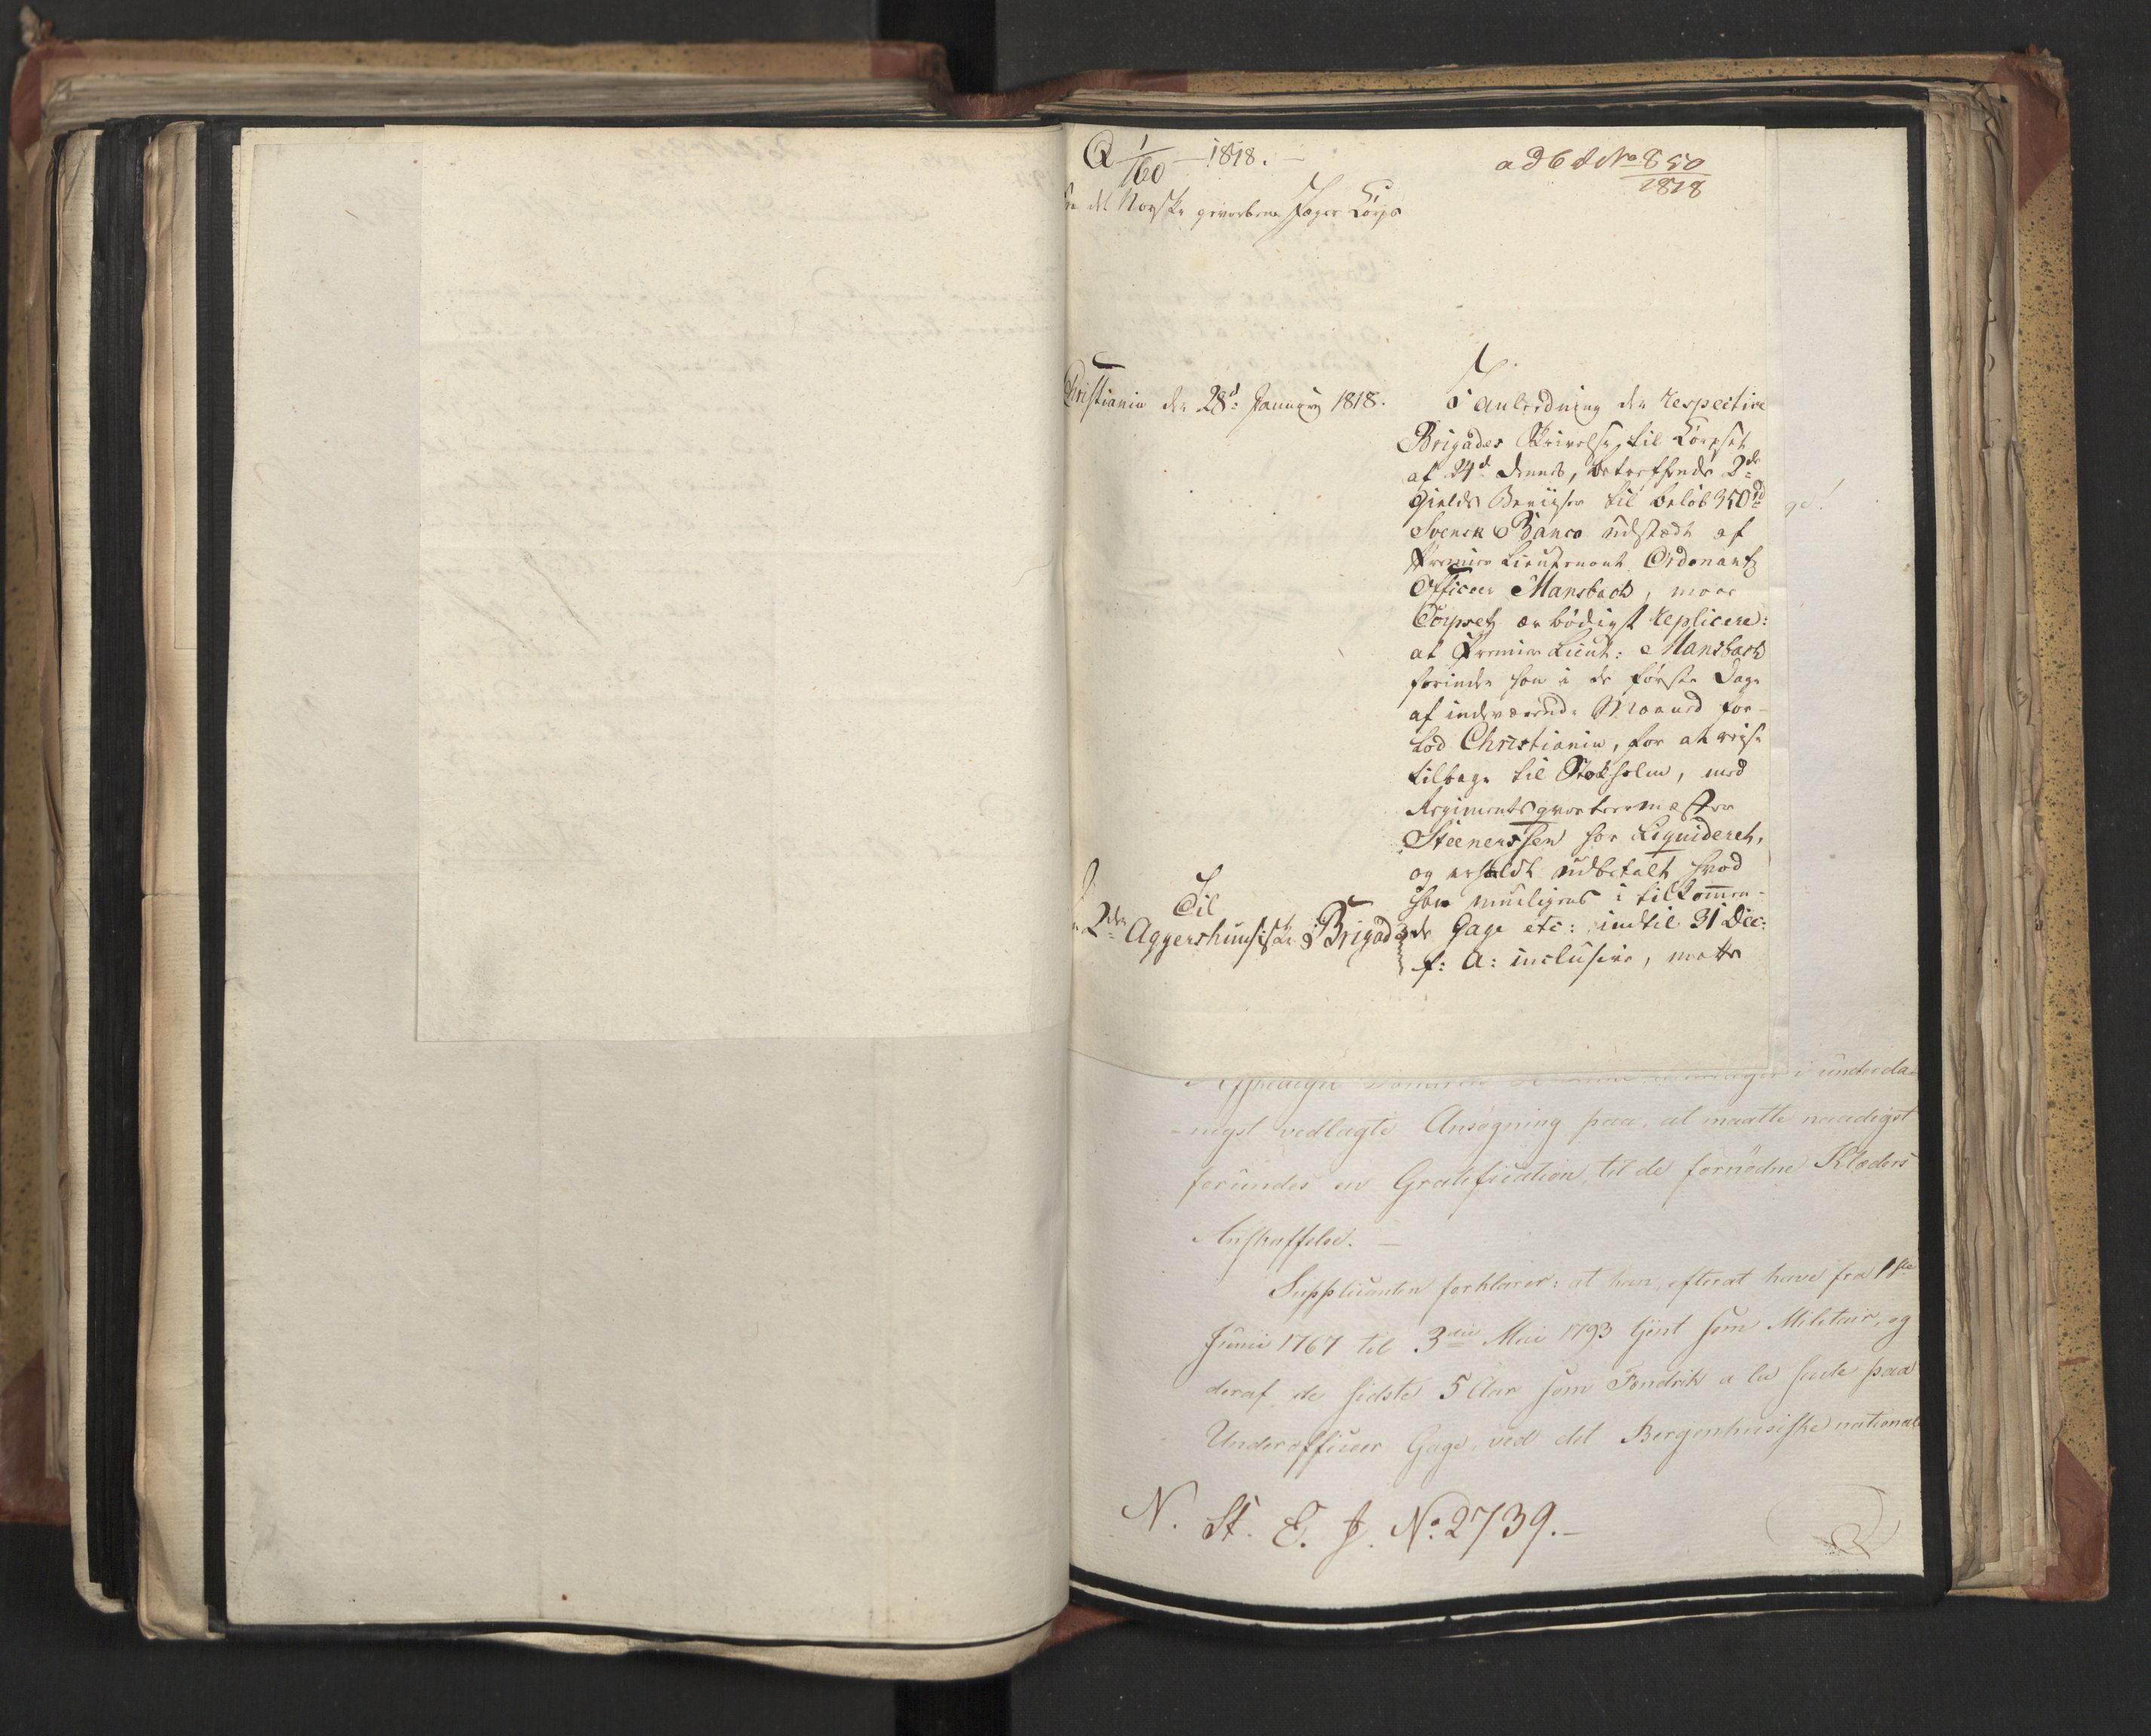 Q 1/160 1818.
ad C d No 850/1818
Fra det Norske gevorbene Jæger Corps
Christiania den 28d: Januarij 1818.
I Anledning den respective
Brigades Skrivelse til Corpset
af 24d dennes, betreffende 2de
Gields Beviiser til beløb 350rd
Svensk Banco udstædt af
Premier Lieutenant Ordonantz
Officeer Mansbach, maae
Corpset ærbødigst replicere:
at Premier Lieut: Mansbach
forinden han i de første Dage
af indværende Maaned for-
lod Christiania, for at reise
tilbage til Stokholm, med
Regimentsqvarteermester
Steenerssen har Liqvideret,
og erholdt udbetalt hvad
han mueligens i tilkommen-
de Gage etc: indtil 31 Dec:
f: A: inclusive, maatte
Til
2den Aggershuusiske Brigade
i underda-
-nigst vedlagte Ansøgning paa, at maatte naadigst
forundes en Gratification, til de fornødne Klæders
Anskaffelse. —
Supplicanten forklarer: at han, efterat have fra 1ste
Junii 1767 til 3die Mai 1793 tjent som Militair, og
deraf de sidste 5 Aar som Fendrik a la suite paa
Underofficeer Gage, ved det Bergenhusiske nationale
N. St. E. J. No. 2739. —